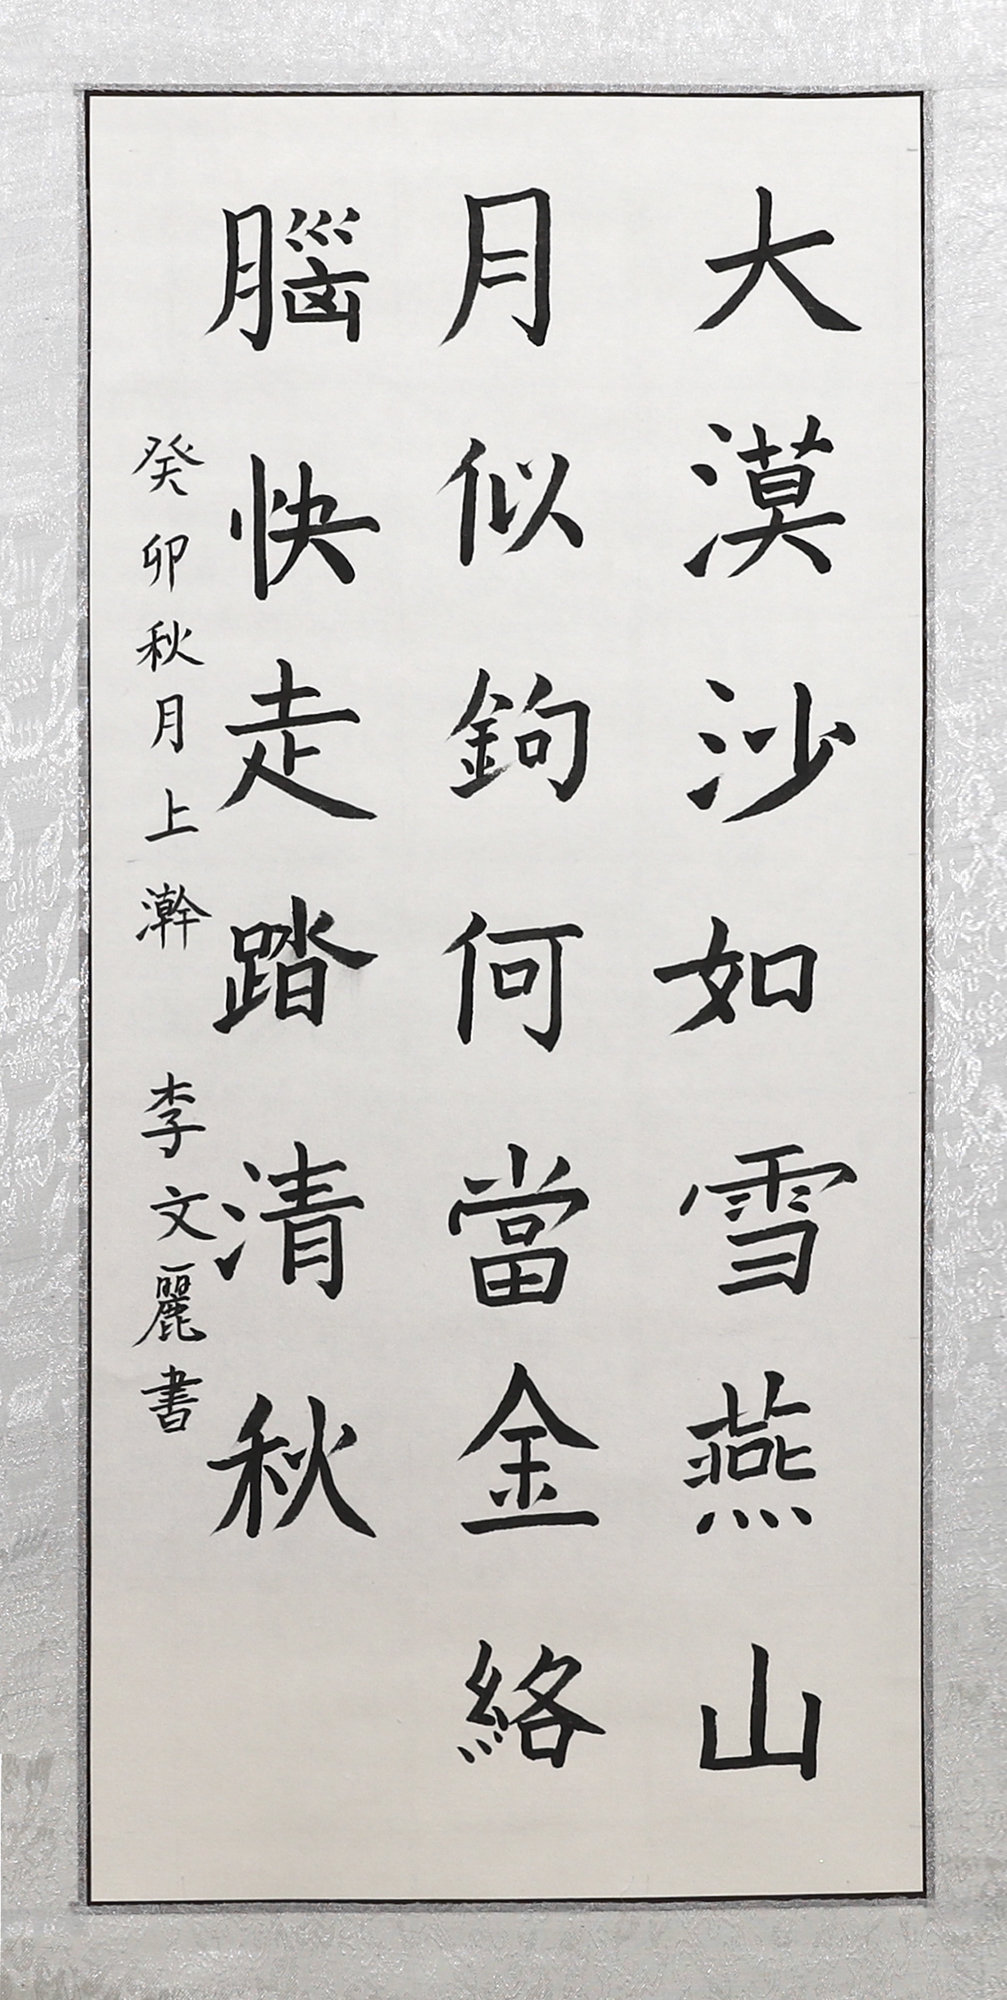 大漠沙如雪燕山
月似鉤何當金絡
腦快走踏清秋
癸卯秋月上澣 李文麗書